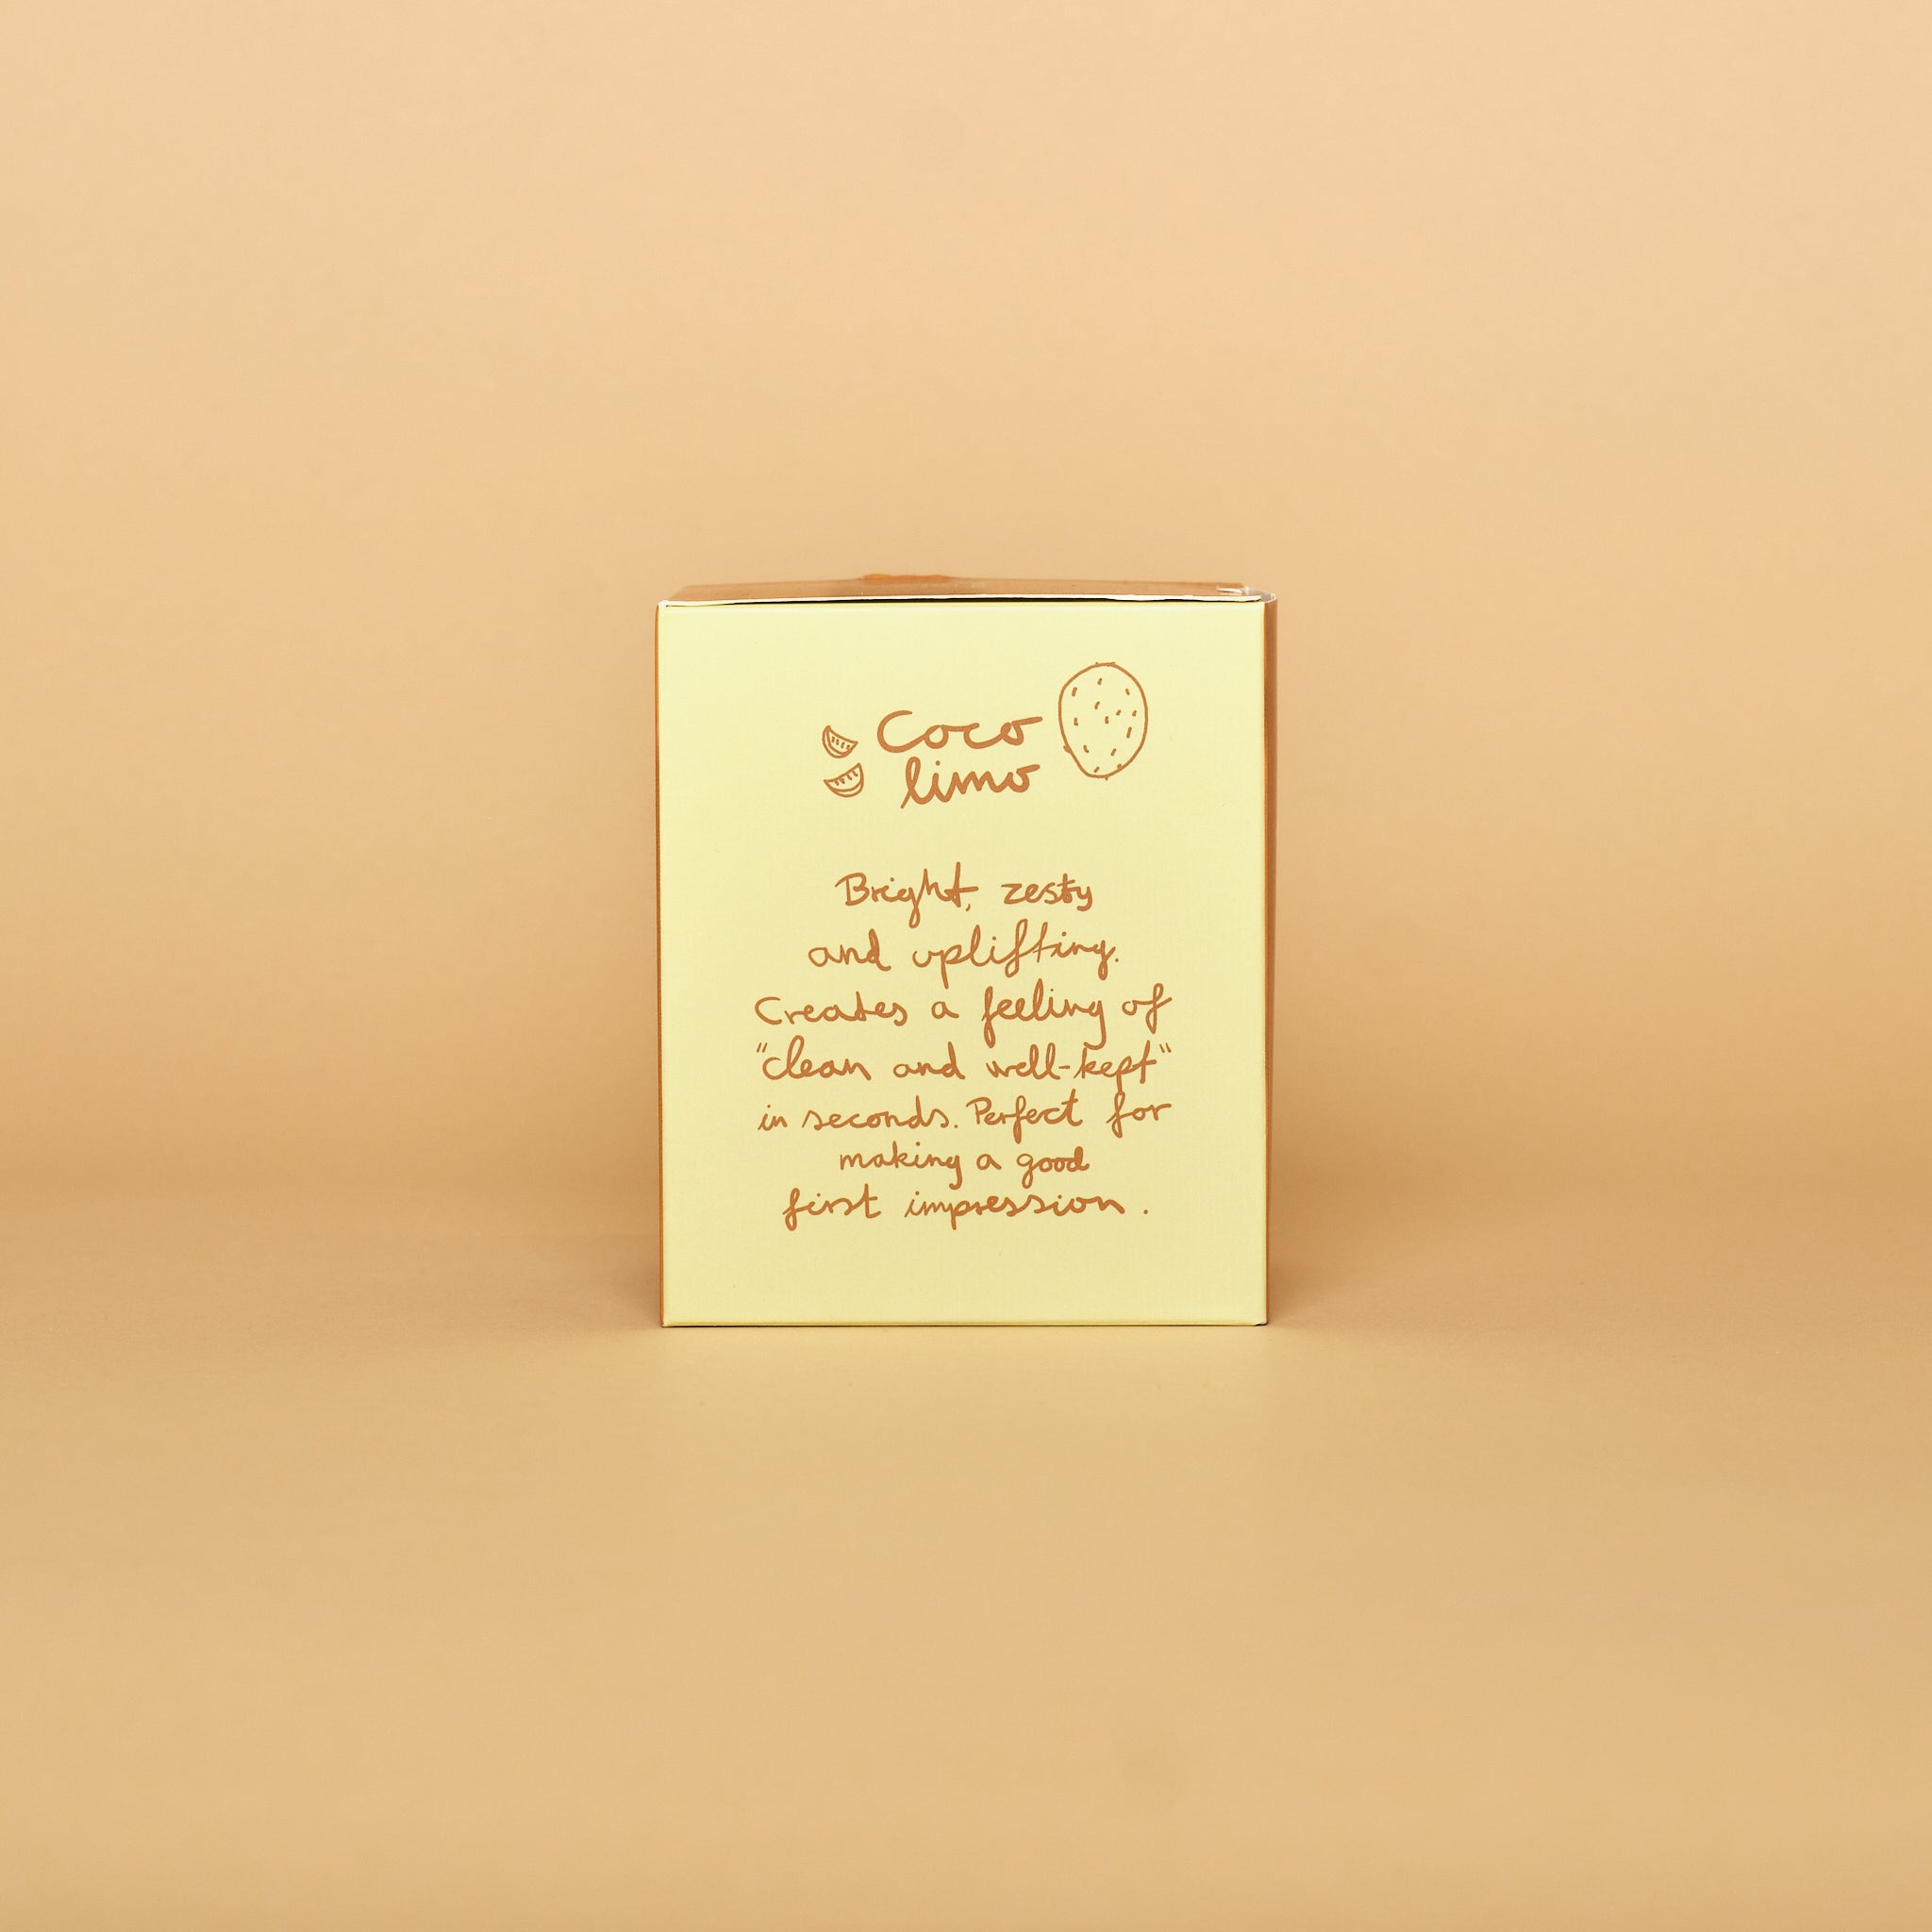 Coco
limo
Bright, zesty
and uplifting.
Creates a feeling of
"clean and well-kept"
in seconds. Perfect for
making a good
first impression.